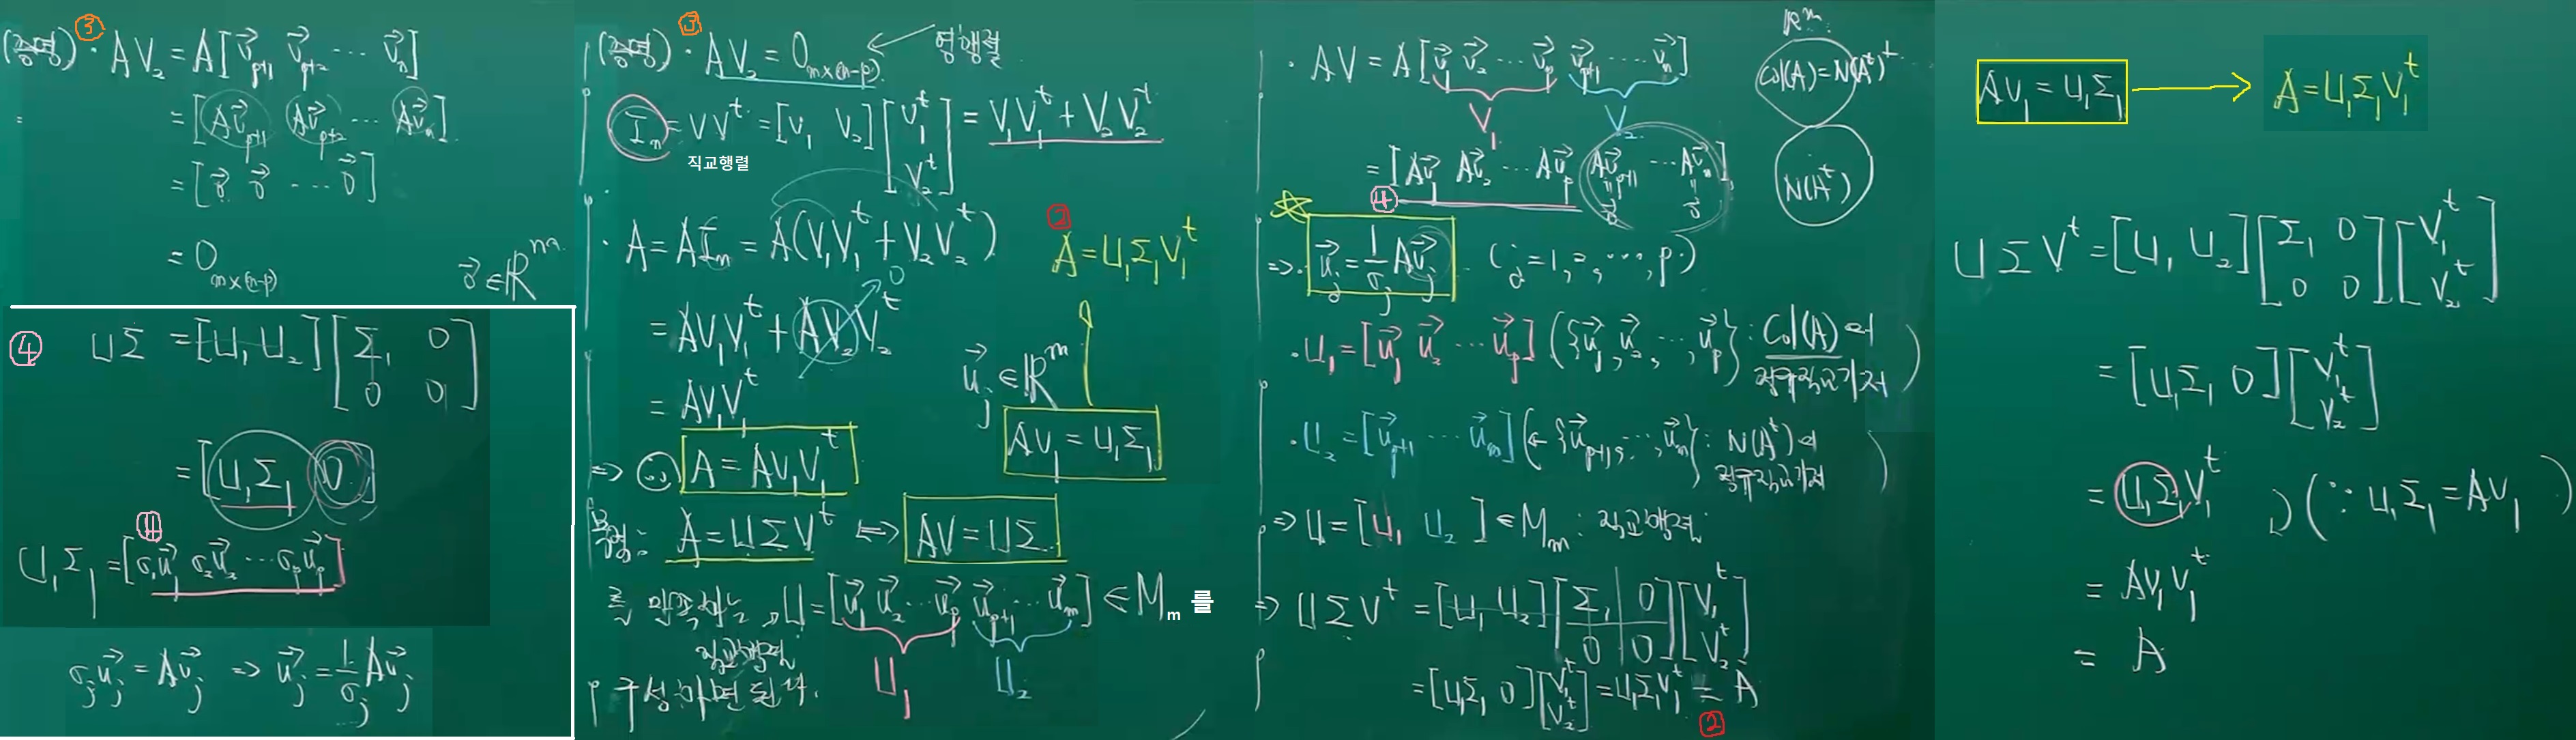 (증명) ③ · AV₂ = A[v⃗ₚ₊₁ v⃗ₚ₊₂ ⋯ v⃗ₙ]
= [Av⃗ₚ₊₁ Av⃗ₚ₊₂ ⋯ Av⃗ₙ]
= [0⃗ 0⃗ ⋯ 0⃗]
= O_{m×(n-p)} 0⃗ ∈ ℝᵐ
④ UΣ = [U₁ U₂][Σ₁ 0; 0 0]
= [U₁Σ₁ 0]
④
U₁Σ₁ = [σ₁u⃗₁ σ₂u⃗₂ ⋯ σₚu⃗ₚ]
σⱼu⃗ⱼ = Av⃗ⱼ ⇒ u⃗ⱼ = 1/σⱼ Av⃗ⱼ
(증명) ③ · AV₂ = O_{m×(n-p)} ← 영행렬
Iₙ = VVᵗ = [V₁ V₂][V₁ᵗ; V₂ᵗ] = V₁V₁ᵗ + V₂V₂ᵗ
직교행렬
· A = AIₙ = A(V₁V₁ᵗ + V₂V₂ᵗ)
② A = U₁Σ₁V₁ᵗ
= AV₁V₁ᵗ + AV₂V₂ᵗ 0
= AV₁V₁ᵗ
u⃗ⱼ ∈ ℝᵐ
AV₁ = U₁Σ₁
⇒ ∴ A = AV₁V₁ᵗ
A = UΣVᵗ ⇔ AV = UΣ
를 만족하는 U = [u⃗₁ u⃗₂ ⋯ u⃗ₚ u⃗ₚ₊₁ ⋯ u⃗ₘ] ∈ Mₘ 를
직교행렬
U₁ U₂
구성하면 된다.
· AV = A[v⃗₁ v⃗₂ ⋯ v⃗ₚ v⃗ₚ₊₁ ⋯ v⃗ₙ]
V₁ V₂
= [Av⃗₁ Av⃗₂ ⋯ Av⃗ₚ Av⃗ₚ₊₁ ⋯ Av⃗ₙ]
④ 0⃗ 0⃗
ℝᵐ
Col(A) = N(Aᵗ)
N(Aᵗ)
⇒ · u⃗ⱼ = 1/σⱼ Av⃗ⱼ (j = 1, 2, ⋯, p)
· U₁ = [u⃗₁ u⃗₂ ⋯ u⃗ₚ] ({u⃗₁, u⃗₂, ⋯, u⃗ₚ} : Col(A)의
정규직교기저)
· U₂ = [u⃗ₚ₊₁ ⋯ u⃗ₘ] (← {u⃗ₚ₊₁, ⋯, u⃗ₘ} : N(Aᵗ)의
정규직교기저)
⇒ U = [U₁ U₂] ∈ Mₘ : 직교행렬
⇒ UΣVᵗ = [U₁ U₂][Σ₁ 0; 0 0][V₁ᵗ; V₂ᵗ]
= [U₁Σ₁ 0][V₁ᵗ; V₂ᵗ] = U₁Σ₁V₁ᵗ = A
②
AV₁ = U₁Σ₁ → A = U₁Σ₁V₁ᵗ
UΣVᵗ = [U₁ U₂][Σ₁ 0; 0 0][V₁ᵗ; V₂ᵗ]
= [U₁Σ₁ 0][V₁ᵗ; V₂ᵗ]
= U₁Σ₁V₁ᵗ
(∵ U₁Σ₁ = AV₁)
= AV₁V₁ᵗ
= A